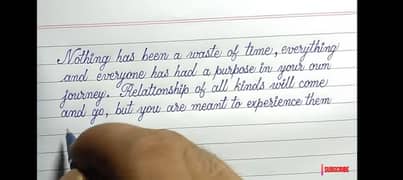 Nothing has been a waste of time, everything
and everyone has had a purpose in your own
journey. Relationship of all kinds will come
and go, but you are meant to experience them